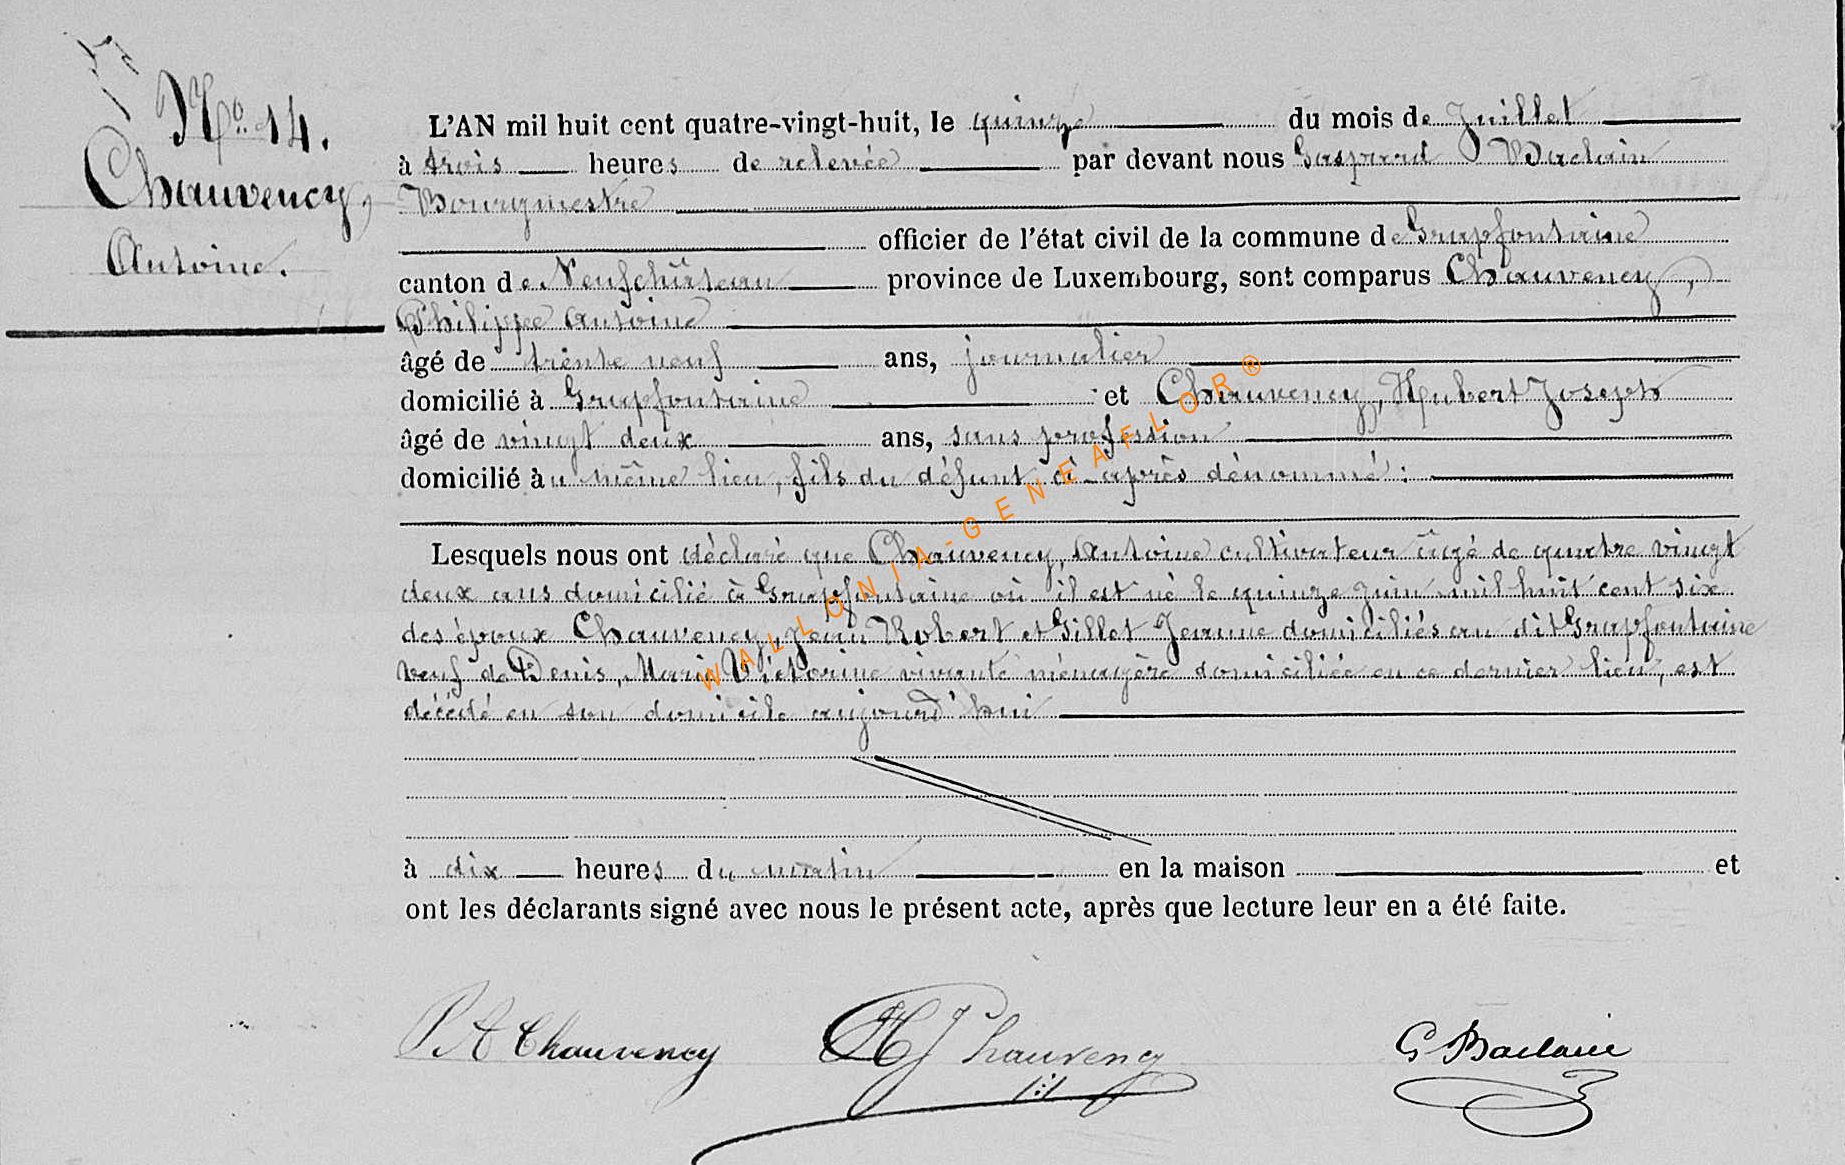 No. 14.
Chauvency,
Antoine.
L'AN mil huit cent quatre-vingt-huit, le quinze du mois de Juillet
à trois heures de relevée par devant nous Gaspard Baclain
Bourgmestre
officier de l'état civil de la commune de Grapfontaine
canton de Neufchâteau province de Luxembourg, sont comparus Chauvency,
Philippe Antoine
âgé de trente neuf ans, journalier
domicilié à Grapfontaine et Chauvency, Hubert Joseph
âgé de vingt deux ans, sans profession
domicilié au même lieu, fils du défunt ci-après dénommé :
Lesquels nous ont déclaré que Chauvency, Antoine cultivateur âgé de quatre vingt
deux ans domicilié à Grapfontaine où il est né le quinze Juin mil huit cent six
des époux Chauvency, Jean Robert et Gillet Jeanne domiciliés au dit Grapfontaine
veuf de Denis, Marie Victorine vivante ménagère domiciliée en ce dernier lieu, est
décédé en son domicile aujourd'hui
à dix heures du matin en la maison et
ont les déclarants signé avec nous le présent acte, après que lecture leur en a été faite.
P A Chauvency HJ Chauvency G Baclain
WALLONIA-GENEAFLOR®